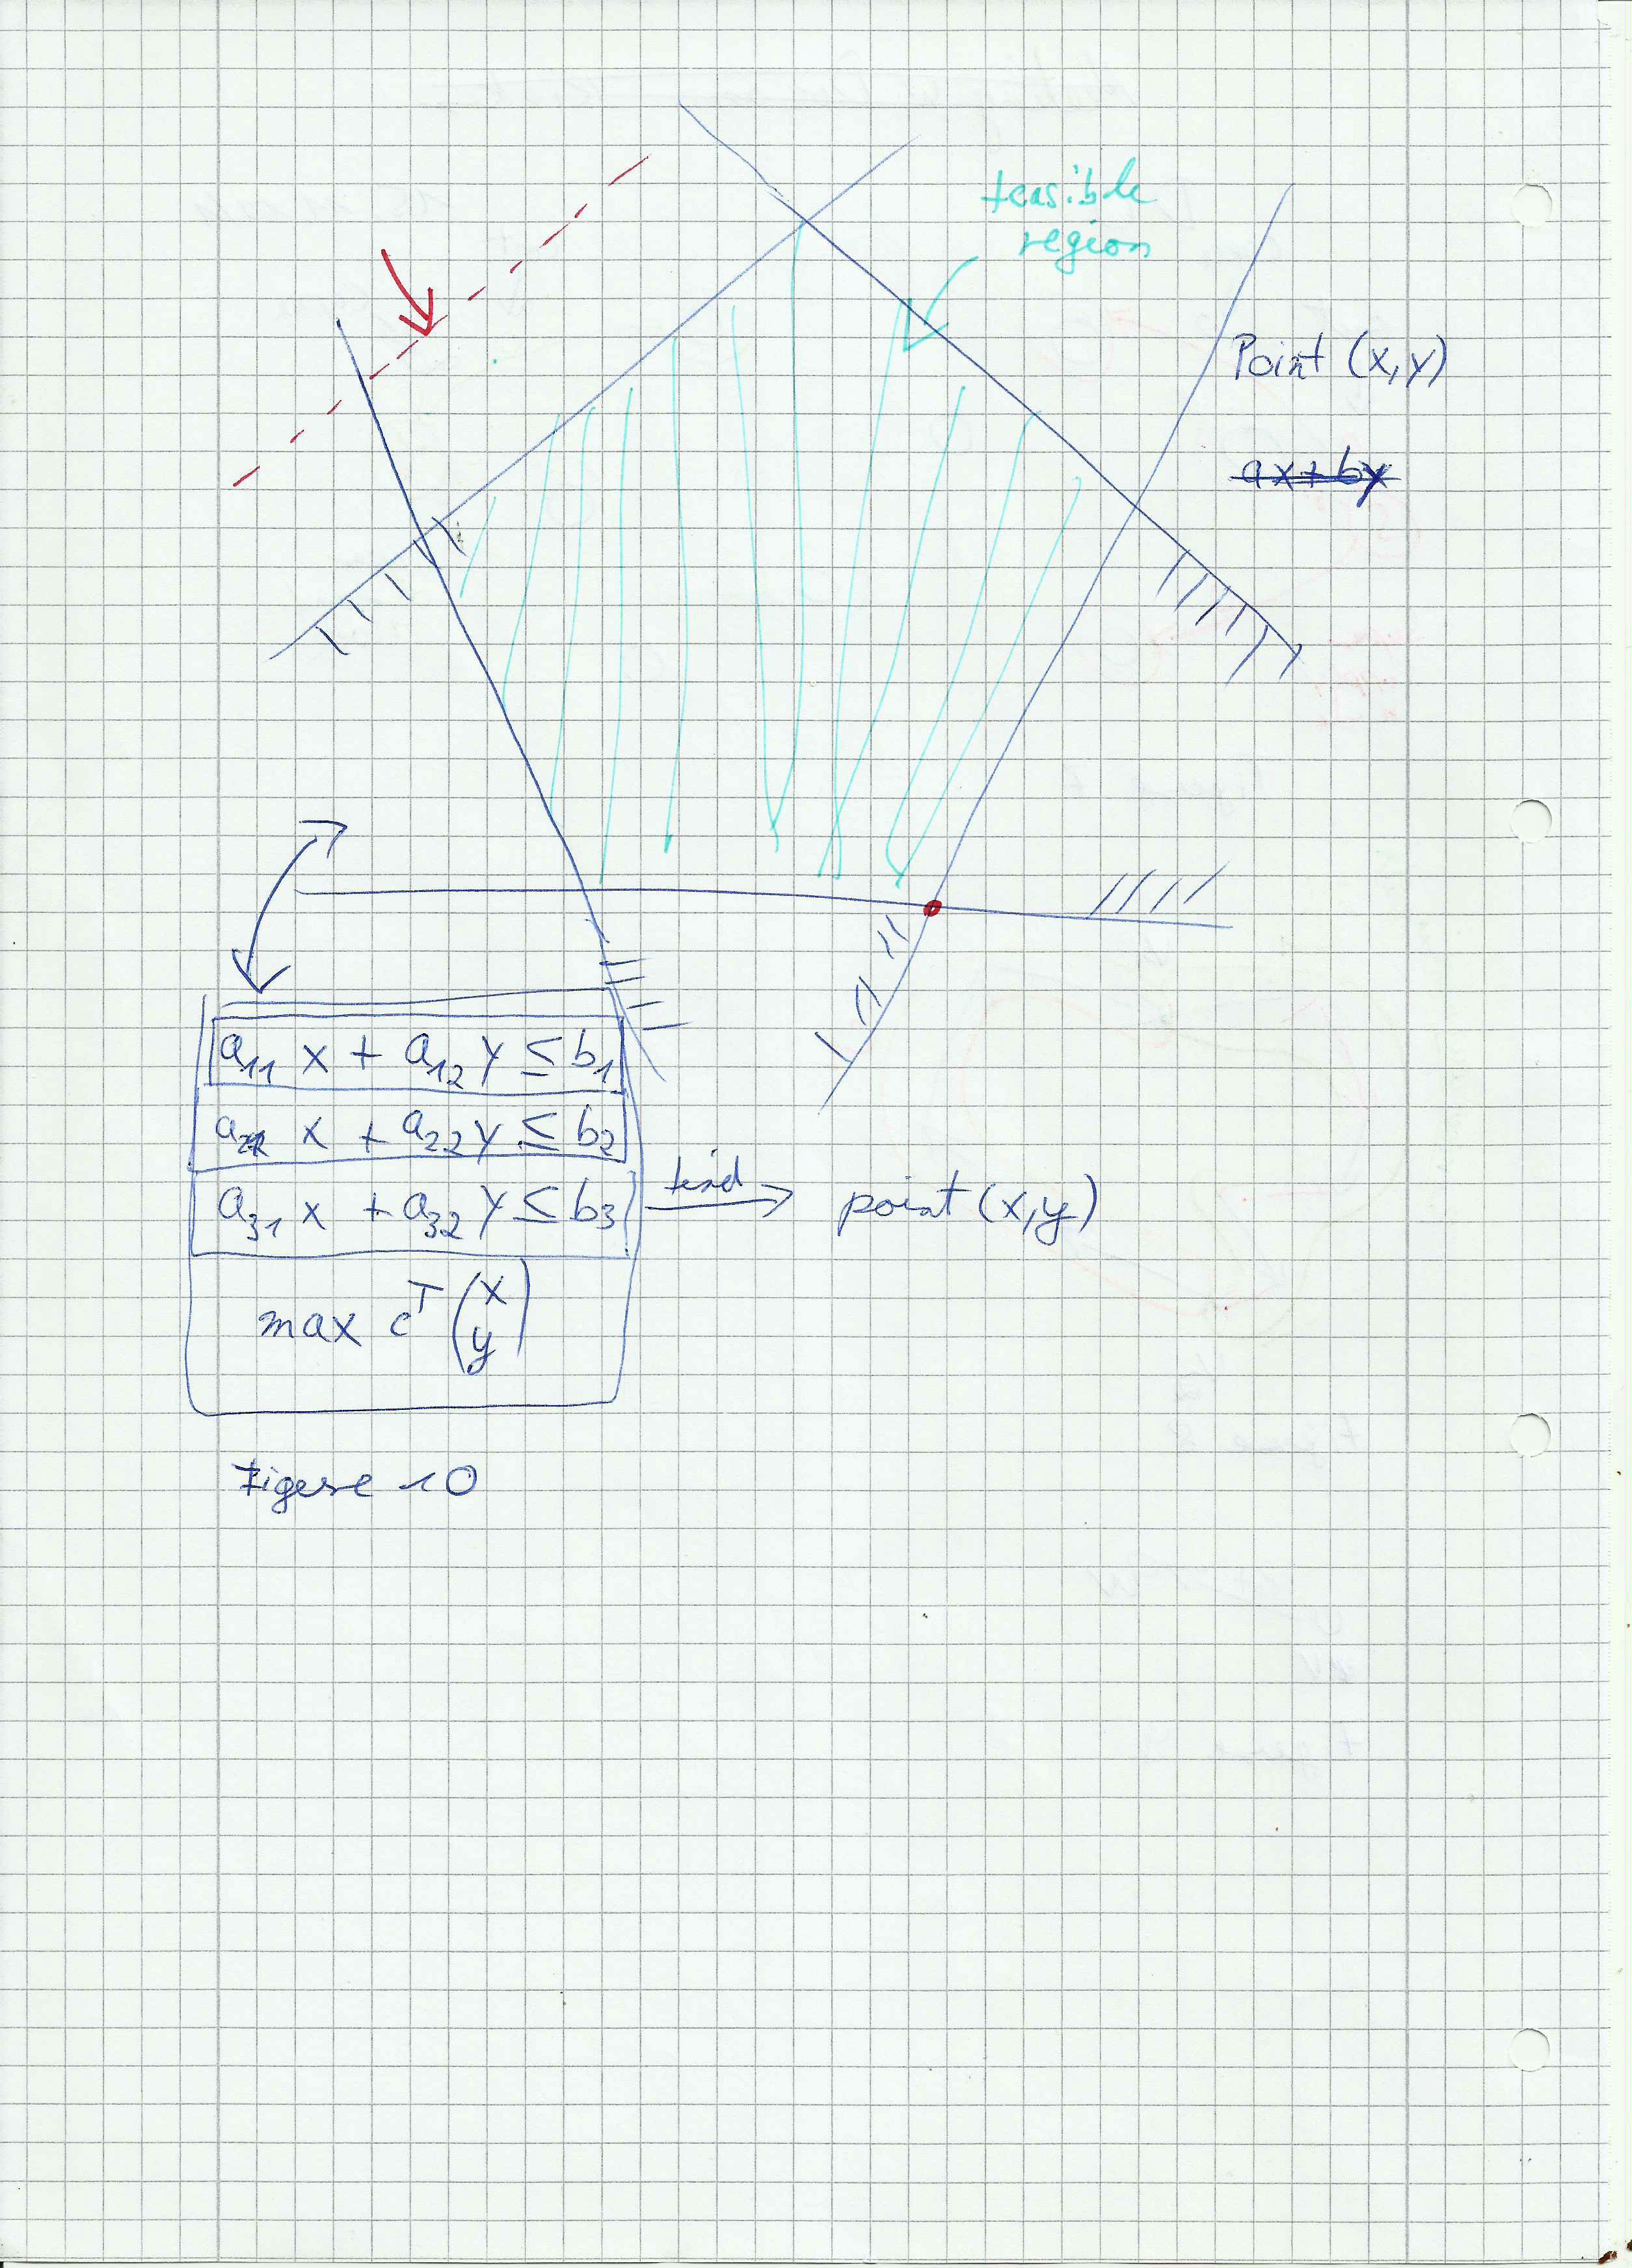 feasible
region
Point (x,y)
ax+by
a₁₁ x + a₁₂ y ≤ b₁
a₂₁ x + a₂₂ y ≤ b₂
a₃₁ x + a₃₂ y ≤ b₃
find
point (x,y)
max cᵀ (x y)
Figure 10